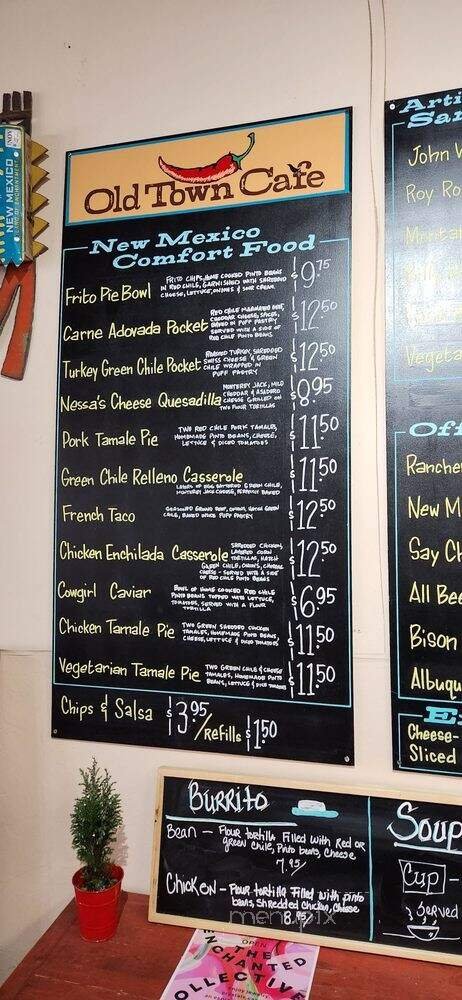 NEW MEXICO
Old Town Cafe
New Mexico
Comfort Food
Frito Pie Bowl
FRITO CHIPS, HOME COOKED PINTO BEANS
IN RED CHILE, GARNISHED WITH SHREDDED
CHEESE, LETTUCE, ONIONS & SOUR CREAM
$9.75
Carne Adovada Pocket
RED CHILE MARINATED BEEF,
CHEDDAR CHEESE, SPICES,
BAKED IN PUFF PASTRY
SERVED WITH A SIDE OF
RED CHILE PINTO BEANS
$12.50
Turkey Green Chile Pocket
ROASTED TURKEY, SHREDDED
SWISS CHEESE & GREEN
CHILE WRAPPED IN
PUFF PASTRY
$12.50
Nessa's Cheese Quesadilla
MONTEREY JACK, MILD
CHEDDAR & ASADERO
CHEESE GRILLED ON
TWO FLOUR TORTILLAS
$8.95
Pork Tamale Pie
TWO RED CHILE PORK TAMALES,
HOMEMADE PINTO BEANS, CHEESE,
LETTUCE & DICED TOMATOES
$11.50
Green Chile Relleno Casserole
LAYERS OF EGG BATTERED GREEN CHILE,
MONTEREY JACK CHEESE, PERFECTLY BAKED
$11.50
French Taco
SEASONED GROUND BEEF, ONIONS, HATCH GREEN
CHILE, BAKED INSIDE PUFF PASTRY
$12.50
Chicken Enchilada Casserole
SHREDDED CHICKEN,
LAYERED CORN
TORTILLAS, HATCH
GREEN CHILE, ONIONS, CHEDDAR
CHEESE - SERVED WITH A SIDE
OF RED CHILE PINTO BEANS
$12.50
Cowgirl Caviar
BOWL OF HOME COOKED RED CHILE
PINTO BEANS TOPPED WITH LETTUCE,
TOMATOES, SERVED WITH A FLOUR
TORTILLA
$6.95
Chicken Tamale Pie
TWO GREEN SHREDDED CHICKEN
TAMALES, HOMEMADE PINTO BEANS,
CHEESE, LETTUCE & DICED TOMATOES
$11.50
Vegetarian Tamale Pie
TWO GREEN CHILE & CHEESE
TAMALES, HOMEMADE PINTO
BEANS, LETTUCE & DICED TOMATOES
$11.50
Chips & Salsa $3.95/Refills $1.50
Arti
Sa
John W
Roy Ro
Vegeta
Off
Ranche
New M
Say Ch
All Bee
Bison
Albuqu
Cheese-
Sliced
Burrito
Bean - Flour tortilla Filled with Red or
green chile, Pinto beans, cheese
7.95/
Chicken - Flour tortilla Filled with pinto
beans, Shredded chicken, cheese
8.95
Soup
Cup -
Served
menupix
OPEN
THE
ENCHANTED
OLLECTIVE